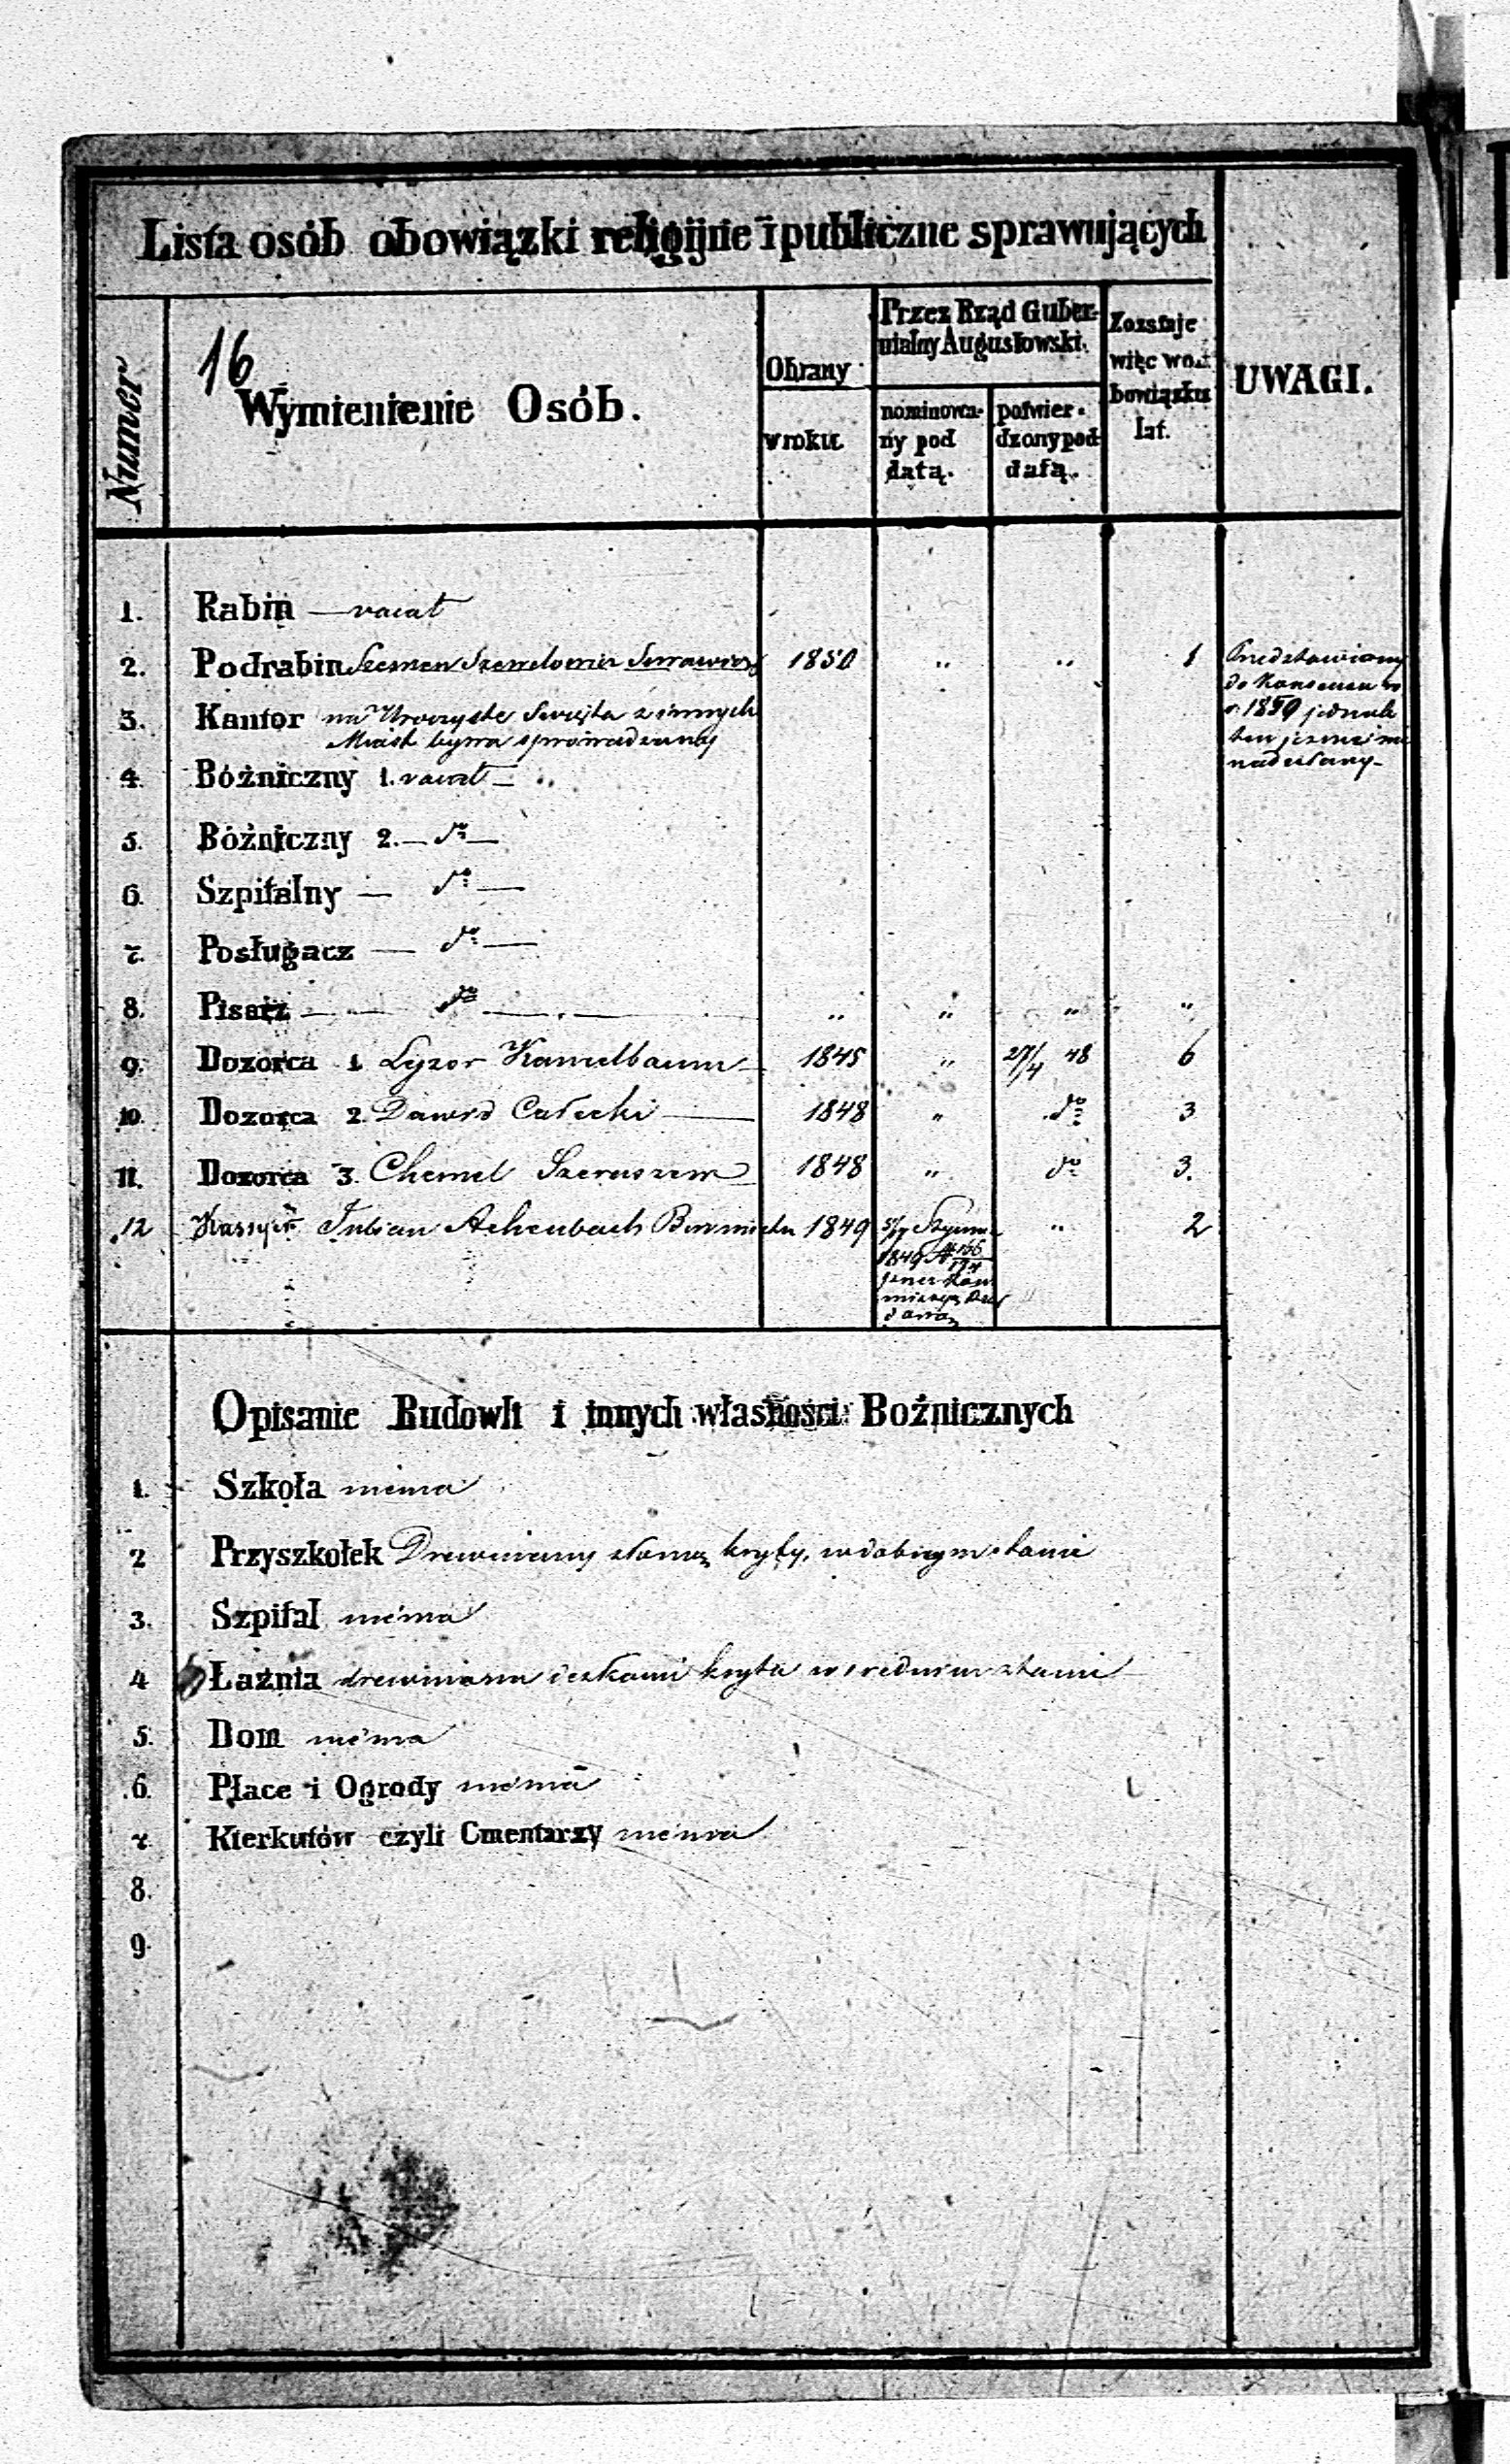 Lista osób obowiązki religijne i publiczne sprawujących
Numer
16
Wymienienie Osób.
Obrany w roku
Przez Rząd Gubernialny Augustowski.
nominowany pod datą.
potwierdzony pod datą.
Zozstaje więc w obowiązku lat.
UWAGI.
1. Rabin — vacat
2. Podrabin Szemen 1850 „ „ 1
Przedstawiony
do Konsensu w
r. 1850 jednak
ten jeszcze nie
nadesłany
3. Kantor na Uroczyste Swięta z innych
Miast bywa sprowadzany
4. Bóżniczny 1. vacat — „
5. Bóżniczny 2. — do —
6. Szpitalny — do —
7. Posługacz — do —
8. Pisarz — — do — „ „ „ „
9. Dozorca 1. Leyzor Kamelbaum 1845 „ 27/4 48 6
10. Dozorca 2. Dawid Całecki — 1848 „ do 3
11. Dozorca 3. Chemel Szeruszew 1848 „ do 3.
12 Kassyer Achenbach 1849 „ 2
1849 N 166
Opisanie Budowli i innych własności Boźnicznych
1. Szkoła niéma
2 Przyszkołek Drewniany słomą kryty, w dobrym stanie
3. Szpital niéma
4 Łaźnia drewniana deskami kryta w srednim stanie
5. Dom niéma
6. Place i Ogrody niéma
7. Kierkutów czyli Cmentarzy niéma
8.
9.